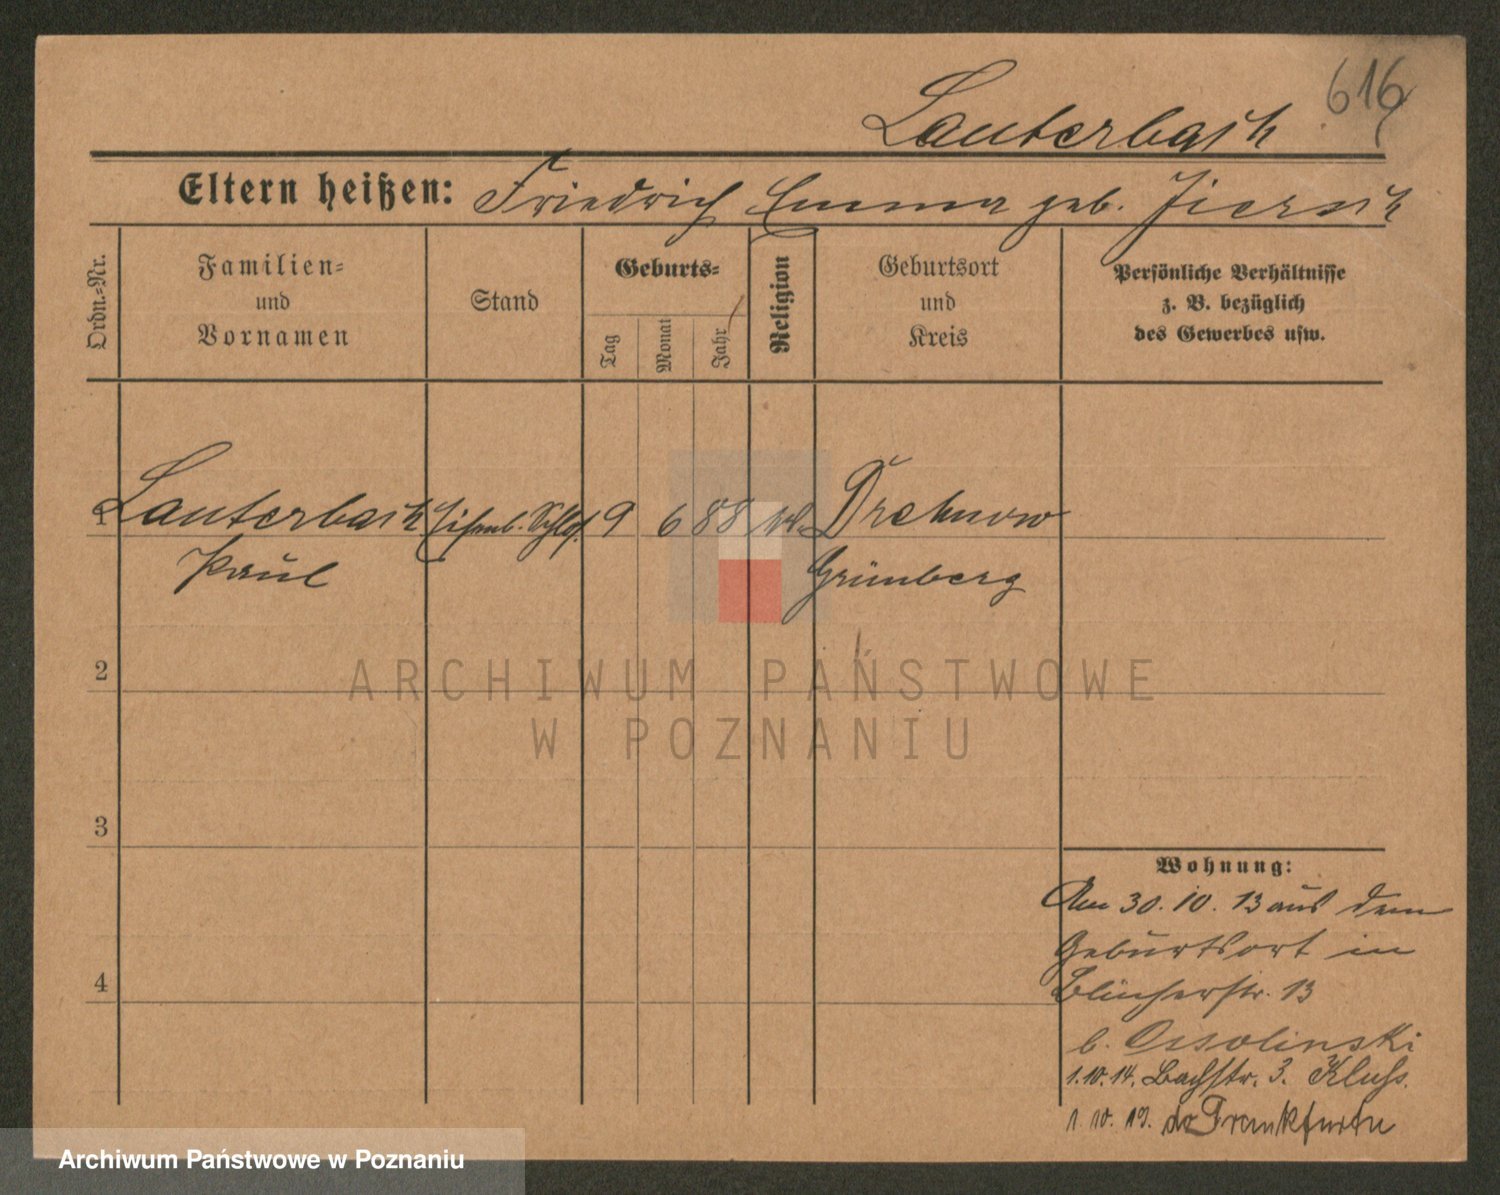 616
Lauterbach
Eltern heißen: Friedrich Emma geb.
Ordn.-Nr.
Familien-
und
Vornamen
Stand
Geburts-
Tag
Monat
Jahr
Religion
Geburtsort
und
Kreis
Persönliche Verhältnisse
z. B. bezüglich
des Gewerbes usw.
1 Lauterbach Eisenb. Schlos. 9 6 88 Drehnow
Paul Grünberg
2
ARCHIWUM PAŃSTWOWE
W POZNANIU
3
4
Wohnung:
Am 30. 10. 13 aus dem
Geburtsort in
Blücherstr. 13
b. Ossolinski
1. 10. 14. Bachstr. 3. Kluss.
1 10. 19.
Archiwum Państwowe w Poznaniu